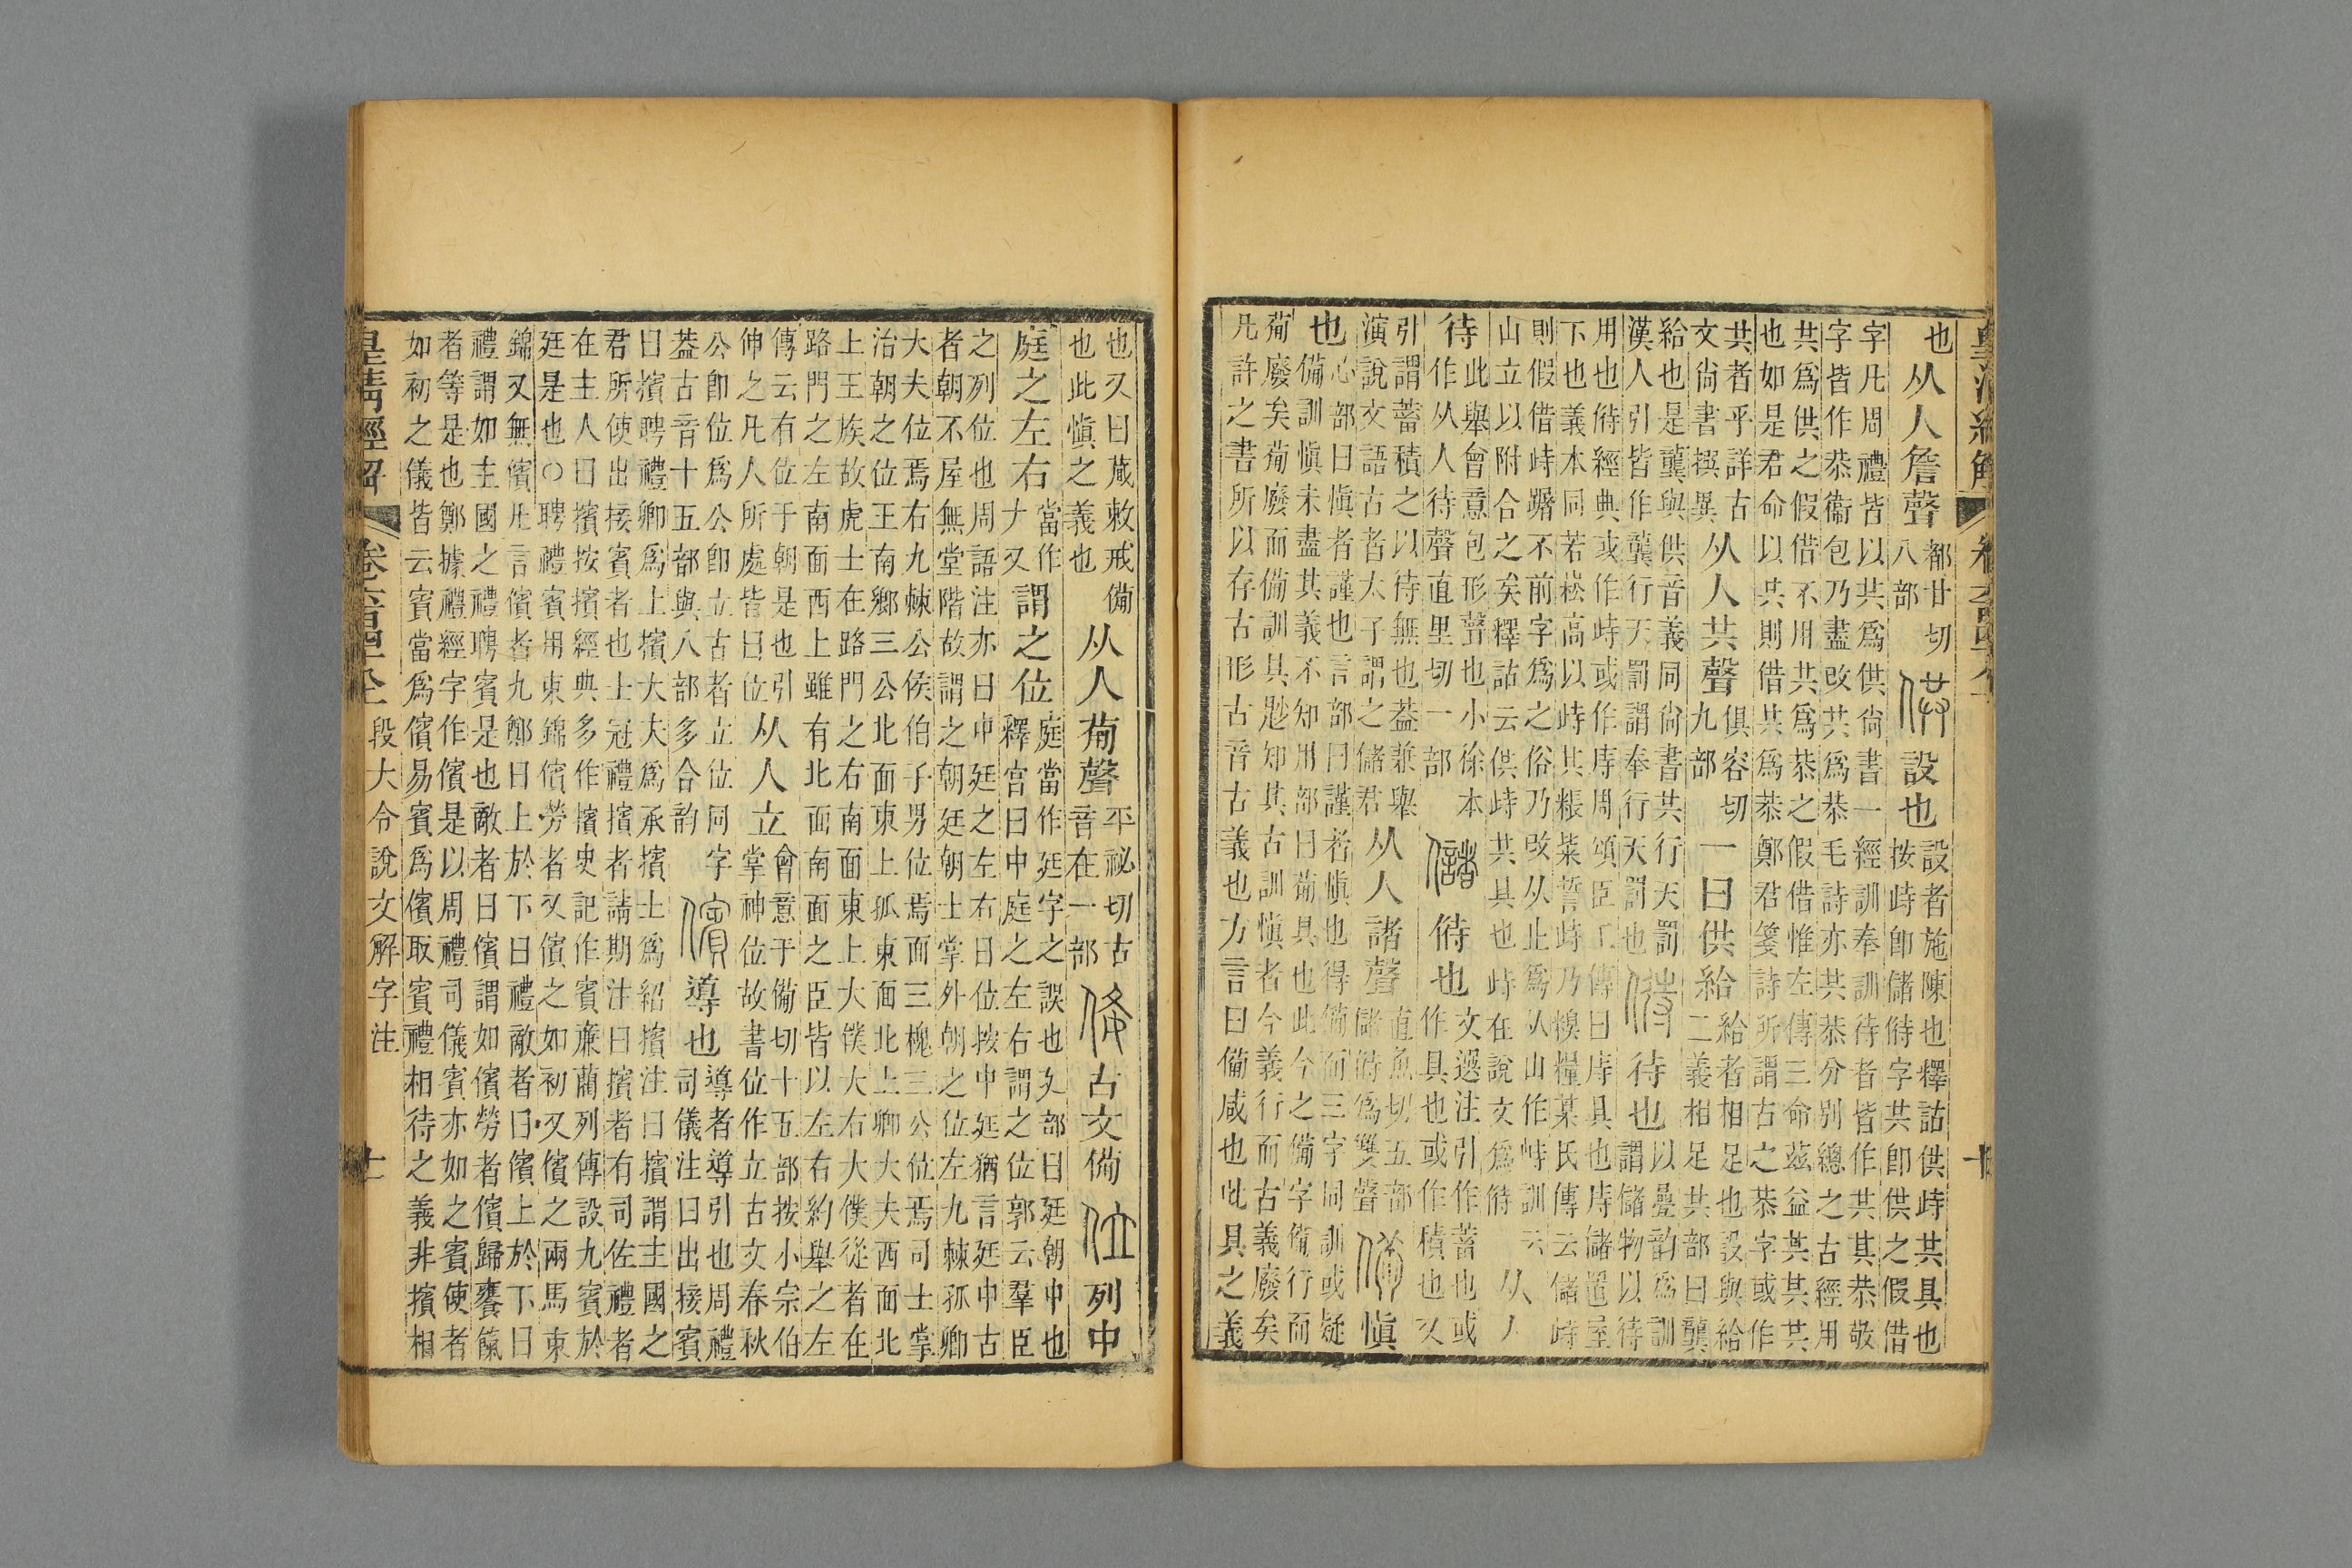 皇清經解 卷六百四十八 十
也从人詹聲都甘切
八部
供設也設者施陳也釋詁供峙共具也
按峙卽儲偫字共卽供之假借
字凡周禮皆以共爲供尚書一經訓奉訓待者皆作共其恭敬
字皆作恭衞包乃盡改共爲恭毛詩亦共恭分別緫之古經用
共爲供之假借不用共爲恭之假借惟左傳三命茲益共其共
也如是君命以共則借共爲恭鄭君箋詩所謂古之恭字或作
共者乎詳古
文尚書撰異
从人共聲俱容切
九部
一曰供給給者相足也設與給
二義相足共部曰龔
給也是龔與供音義同尚書共行天罰
漢人引皆作龔行天罰謂奉行天罰也
偫待也以曡韵爲訓
謂儲物以待
用也偫經典或作峙或作庤周頌臣工傳曰庤具也庤儲置屋
下也義本同若崧高以峙其粻粊誓峙乃糗糧某氏傳云儲峙
則假借峙躇不前字爲之俗乃改从止爲从山作峙訓云
山立以附合之矣釋詁云供峙共具也峙在說文爲偫
从人
待此舉會意包形聲也小徐本
作从人待聲直里切一部
儲偫也文選注引作蓄也或
作具也或作積也又
引謂蓄積之以待無也葢兼舉
演說文語古者太子謂之儲君
从人諸聲直魚切五部
儲偫爲雙聲
備愼
也心部曰愼者謹也言部曰謹者愼也得備而三字同訓或疑
備訓愼未盡其義不知用部曰葡具也此今之備字備行而
葡廢矣葡廢而備訓具尟知其古訓愼者今義行而古義廢矣
凡許之書所以存古形古音古義也方言曰備咸也此具之義
也又曰蕆敕戒備
也此愼之義也
从人葡聲平祕切古
音在一部
㑁古文備
位列中
庭之左右當作
𠂇又
謂之位庭當作廷字之誤也廴部曰廷朝中也
釋宮曰中庭之左右謂之位郭云羣臣
之列位也周語注亦曰中廷之左右曰位按中廷猶言廷中古
者朝不屋無堂階故謂之朝廷朝士掌外朝之位左九棘孤卿
大夫位焉右九棘公侯伯子男位焉面三槐三公位焉司士掌
治朝之位王南鄉三公北面東上孤東面北上卿大夫西面北
上王族故虎士在路門之右南面東上大僕大右大僕從者在
路門之左南面西上雖有北面南面之臣皆以左右約舉之左
傳云有位于朝是也引
伸之凡人所處皆曰位
从人立會意于備切十五部按小宗伯
掌神位故書位作立古文春秋
公卽位爲公卽立古者立位同字
葢古音十五部與八部多合韵
儐導也導者導引也周禮
司儀注曰出接賓
曰擯聘禮卿爲上擯大夫爲承擯士爲紹擯注曰擯謂主國之
君所使出接賓者也士冠禮擯者請期注曰擯者有司佐禮者
在主人曰擯按擯經典多作擯史記作賓廉藺列傳設九賓於
廷是也○聘禮賓用束錦儐勞者又儐之如初又儐之兩馬束
錦又無儐凡言儐者九鄭曰上於下曰禮敵者曰儐上於下曰
禮謂如主國之禮聘賓是也敵者曰儐謂如儐勞者儐歸饔餼
者等是也鄭據禮經字作儐是以周禮司儀賓亦如之賓使者
如初之儀皆云賓當爲儐易賓爲儐取賓禮相待之義非擯相
皇清經解 卷六百四十八 段大令說文解字注 十一